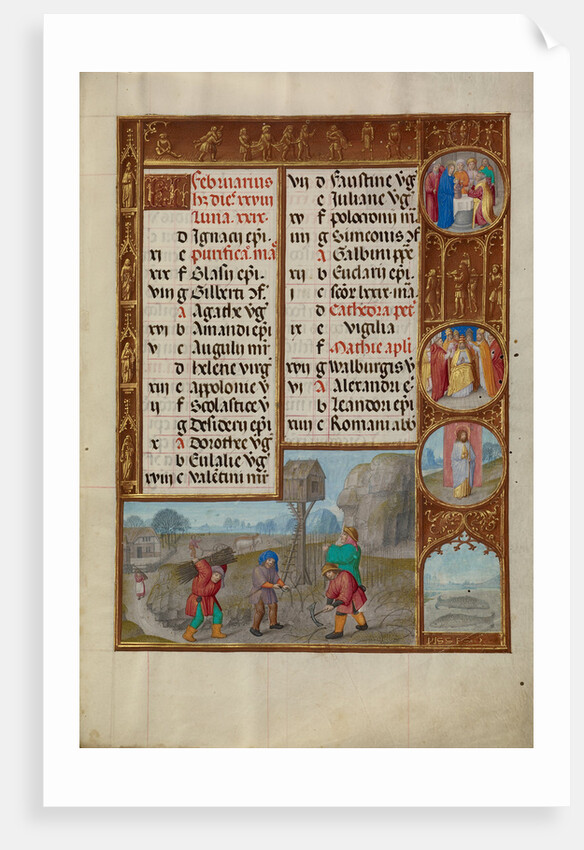 KL Februarius
hz dies xxviii
Luna. xxix.
d Ignacij epi.
xi e purifica. ma
xix f Blasij epi.
viii g Gilberti cf.
A Agathe vg
xvi b Amandi epi
v c Augulij mr
d Helene virg
xiii e appolonie v
ii f Scolastice v
g Desiderij epi
x A Dorothee vg
b Eulalie vg
xviii c Valetini mr
vii d Faustine vg
e Juliane vg
xv f polocronij m
iiii g Simeonis cf
A Galbini ppe
xii b Eucarij epi
i c scor lxxix ma
d Cathedra pet
ix e vigilia
f Mathie apli
xvii g Walburgis v
vi A Alexandri e
b Leandori epi
xiiii c Romani abb